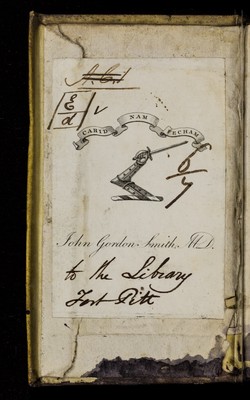 E
d
CARID NAM FECHAM
6
7
John Gordon Smith, M.D.
to the Library
Fort Pitt